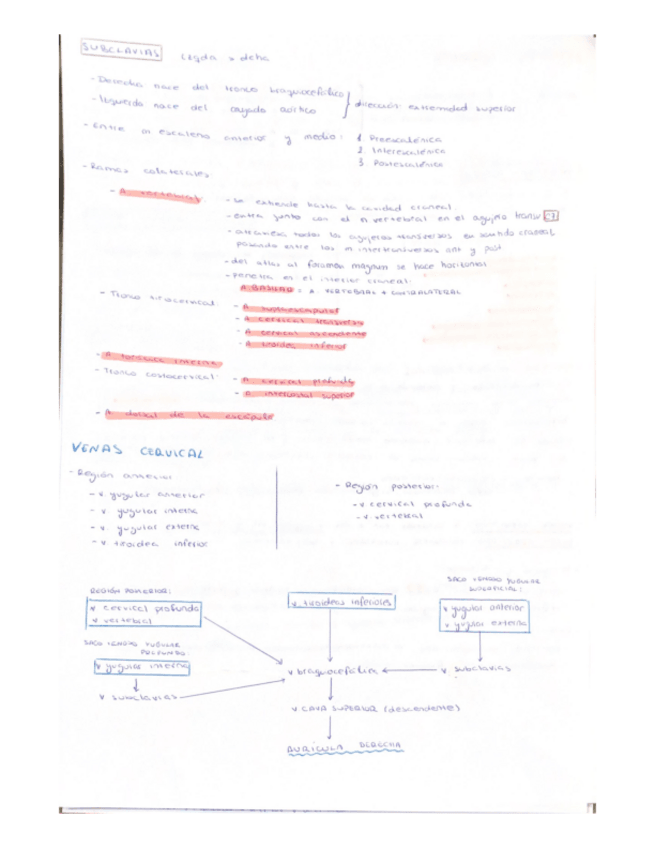 SUBCLAVIAS
- Derecha nace del tronco braquiocefálico
- Izquierda nace del cayado aórtico
dirección: extremidad superior
- Entre m escaleno anterior y medio:
1. Preescalénica
2. Interescalénica
3. Postescalénica
- Ramas colaterales:
- A. vertebral
- se extiende hasta la cavidad craneal.
- entra junto con el n vertebral en el agujero transv C7
- atraviesa todos los agujeros transversos en sentido craneal, pasando entre los m intertransversos ant y post
- del atlas al foramen magnum se hace horizontal
- penetra en el interior craneal:
A. BASILAR = A. VERTEBRAL + CONTRALATERAL
- Tronco tirocervical:
- A supraescapular
- A cervical transversa
- A cervical ascendente
- A. tiroidea inferior
- A torácica interna
- Tronco costocervical:
- A cervical profunda
- A intercostal superior
- A dorsal de la escápula
VENAS CERVICAL
- Región anterior:
- v. yugular anterior
- v. yugular interna
- v. yugular externa
- v. tiroidea inferior
- Región posterior:
- v cervical profunda
- v. vertebral
REGIÓN POSTERIOR:
v cervical profunda
v vertebral
SACO VENOSO YUGULAR PROFUNDO
v yugular interna
v subclavias
v tiroideas inferiores
SACO VENOSO YUGULAR SUPERFICIAL:
v yugular anterior
v yugular externa
v. subclavias
v braquiocefálica
v CAVA SUPERIOR (descendente)
AURÍCULA DERECHA